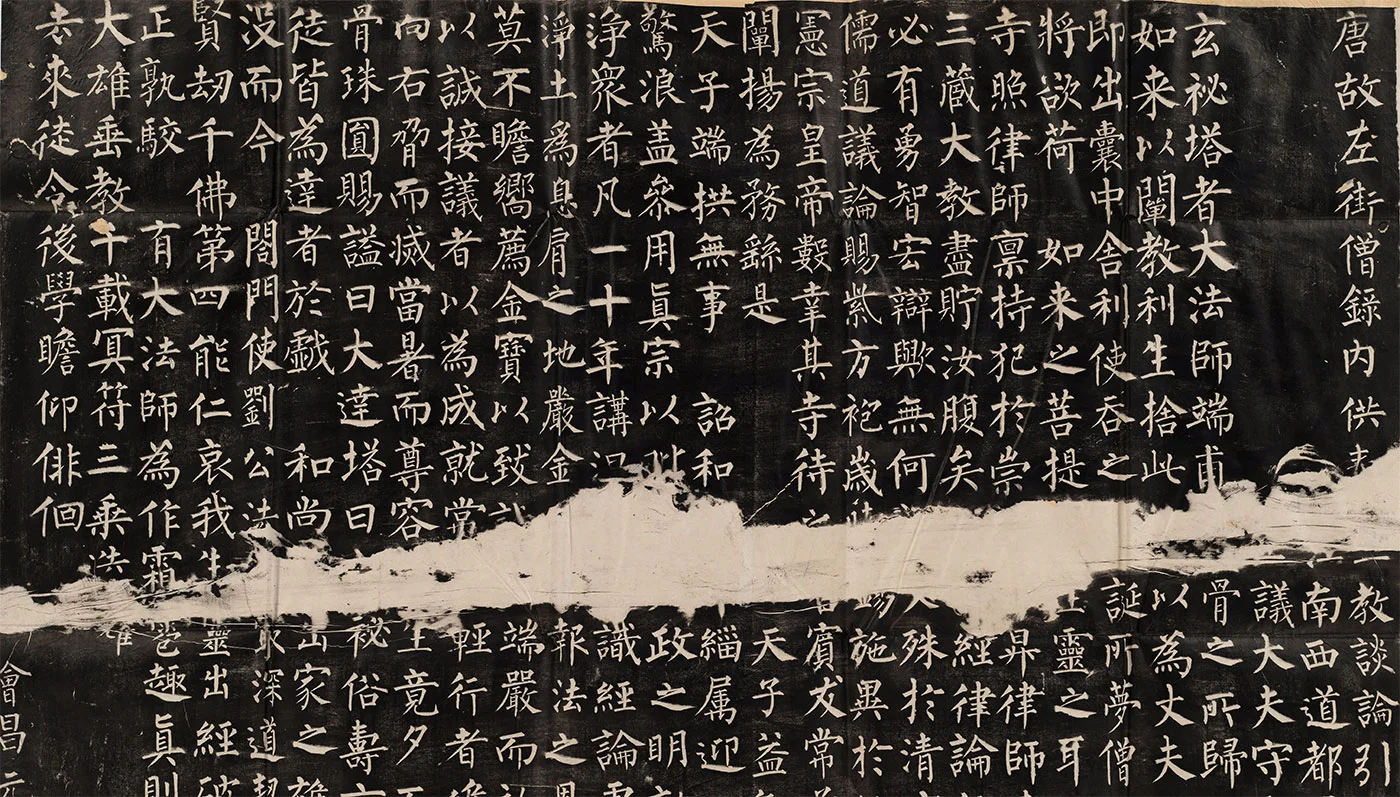 唐故左街僧錄內供奉教談論引
南西道都
議大夫守
玄祕塔者大法師端甫骨之所歸
如来以闡教利生捨此以為丈夫
即出囊中舍利使吞之誕所夢僧
將欲荷 如来之菩提靈之耳
寺照律師禀持犯於崇昇律師
三藏大教盡貯汝腹矣經律論
必有勇智宏辯歟無何殊於清
儒道議論賜紫方袍歲錫施異於
憲宗皇帝數幸其寺待之賓友常
闡揚為務繇是天子益
天子端拱無事 詔和緇属迎
驚浪盖參用真宗以政之明
淨衆者凡一十年講識經論
淨土為息肩之地嚴金報法之
莫不瞻嚮薦金寶以致端嚴而
以誠接議者以為成就常輕行者
向右脅而滅當暑而尊容生竟夕
骨珠圓賜謚曰大達塔曰祕俗壽
徒皆為達者於戲 和尚出家之雄
没而今 閤門使劉公法取深道契
賢劫千佛第四能仁哀我生靈出經破
正孰駮 有大法師為作霜雹趣真則
大雄垂教千載冥符三乘迭
去来徒令後學瞻仰徘徊
會昌元